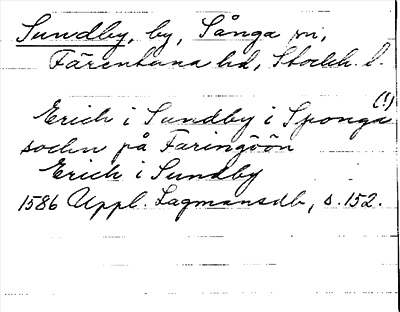 Sundby, by, Sånga sn,
Färentuna hd, Stockh. l.
(!)
Erich i Sundby i Sponga
sochn på Faringöön
Erich i Sundby
1586 Uppl. Lagmansdb, s. 152.